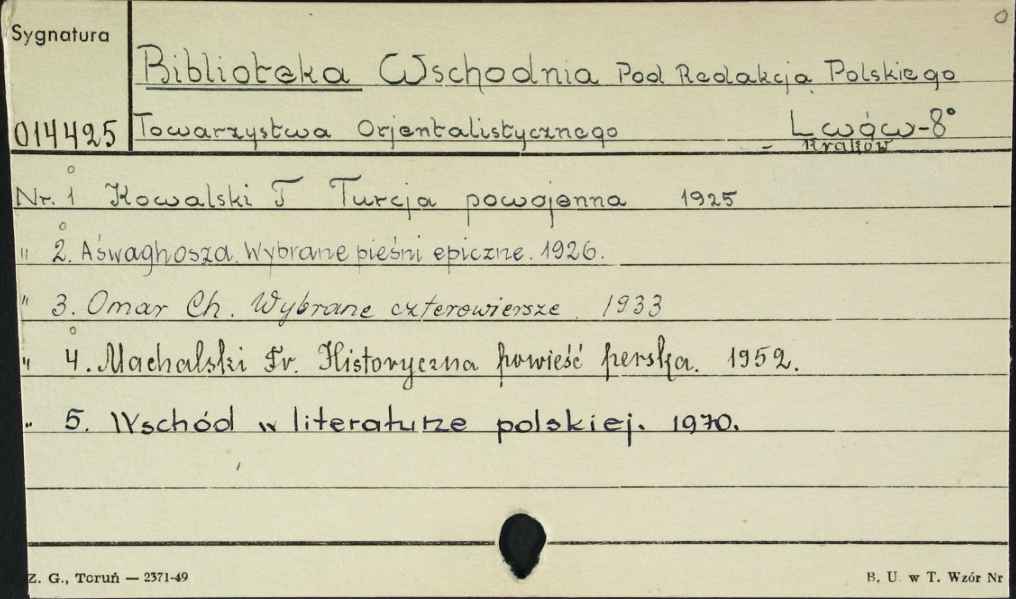 Sygnatura
Biblioteka Wschodnia Pod Redakcją Polskiego
014425 Towarzystwa Orjentalistycznego Lwów-8°
- Kraków
Nr. 1 Kowalski T Turcja powojenna 1925
" 2. Aśwaghosza. Wybrane pieśni epiczne. 1926.
" 3. Omar Ch. Wybrane czterowiersze. 1933
" 4. Machalski Fr. Historyczna powieść perska. 1952.
" 5. Wschód w literaturze polskiej. 1970.
Z. G., Toruń — 2371-49 B. U. w T. Wzór Nr